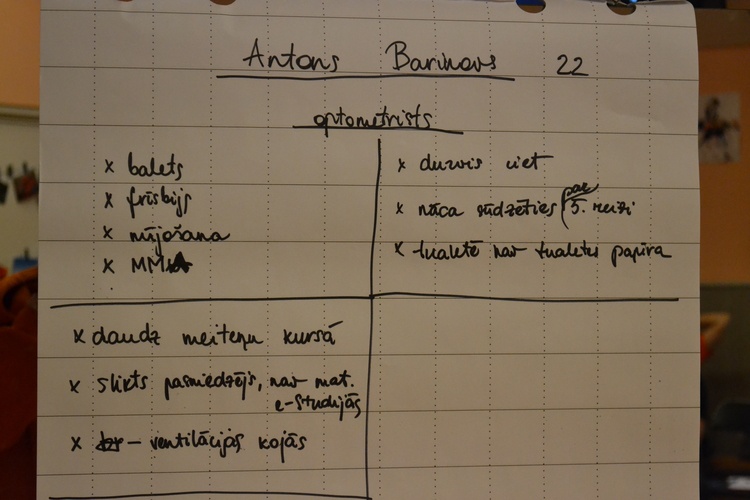 Antons Barinovs 22
optometrists
x balets
x frīsbijs
x nūjošana
x MMA
x durvis ciet
x nāca sūdzēties (pae 5. reizi
x tualetē nav tualetes papīra
x daudz meiteņu kursā
x slikts pasniedzējs, nav mat.
e-studijās
x - ventilācijas kojās